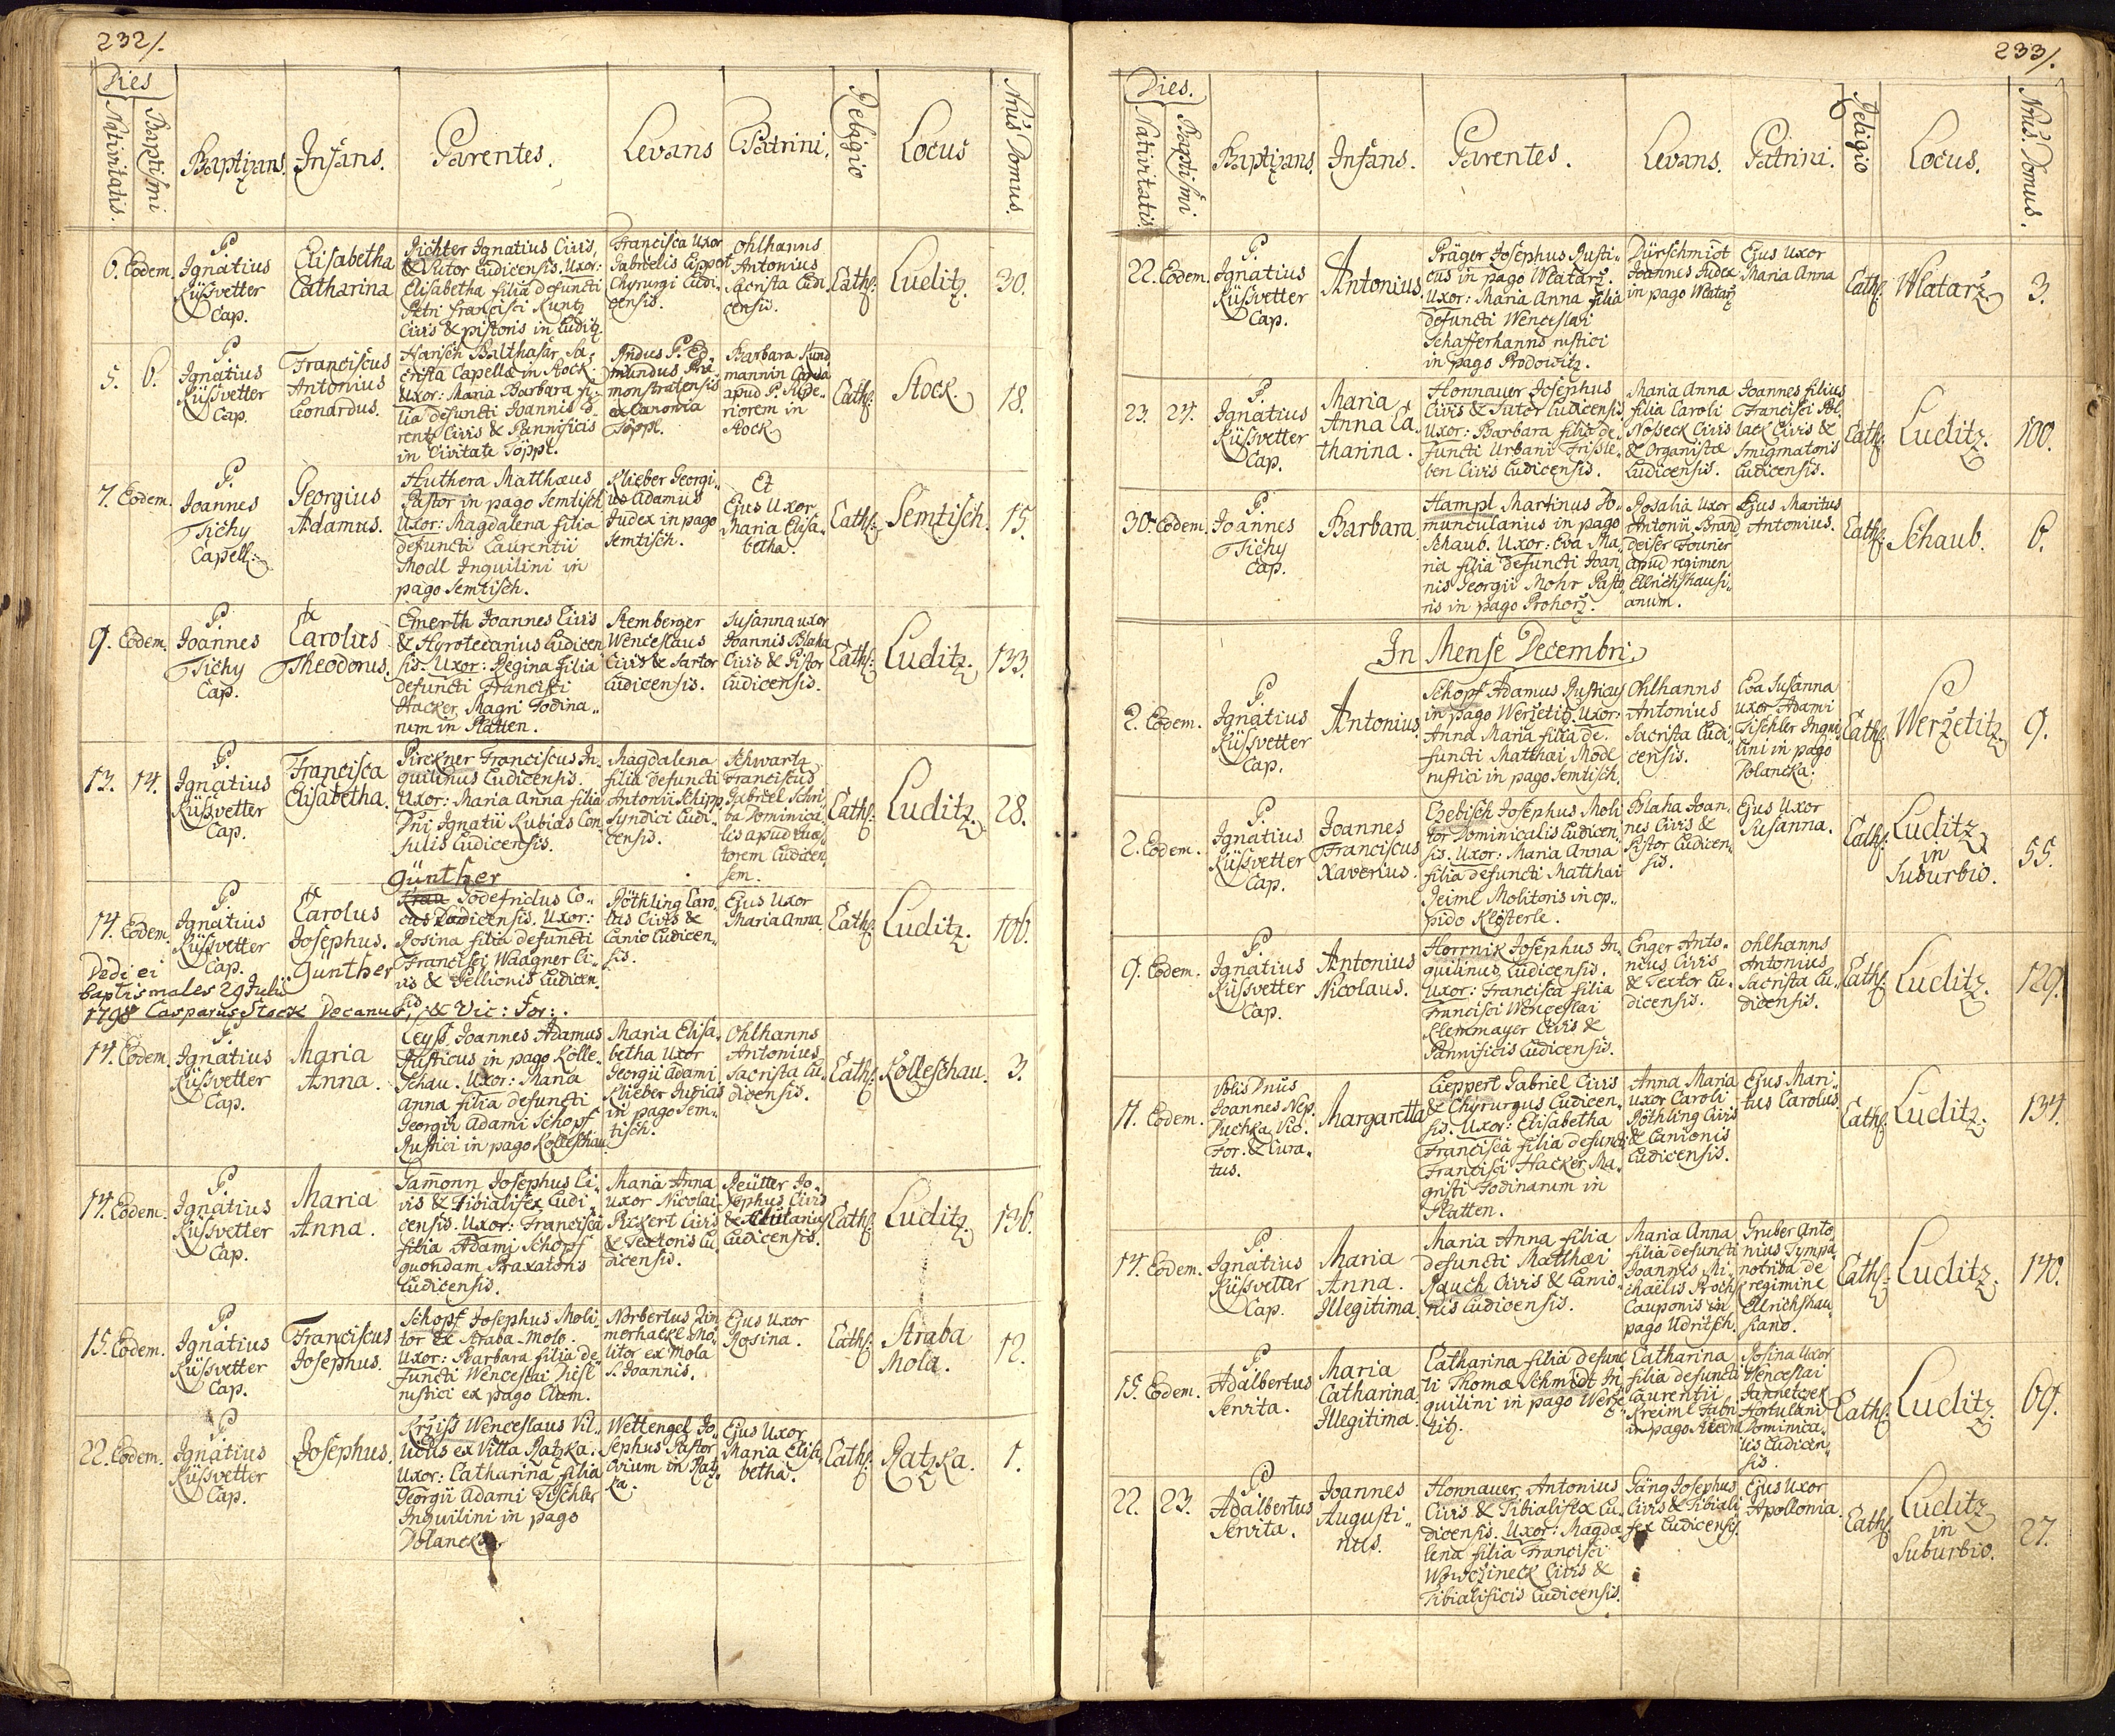 232/.
Dies
Nativitatis.
Baptismi
Baptizans.
Infans.
Parentes.
Levans
Patrini.
Religio
Locus
Nrus Domus.
6. Eodem.
P.
Ignatius
Küssvetter
Cap.
Elisabetha
Catharina
Richter Ignatius Civis,
& Sutor Ludicensis. Uxor:
Elisabetha filia defuncti
Petri Francisci Kuntz
Civis & pistoris in Luditz.
Francisca Uxor
Gabrielis Lippert
Chyrurgi Ludi-
censis.
Ohlhanns
Antonius
Sacrista Ludi
censis.
Cath:
Luditz.
30.
5. 6.
P
Ignatius
Küssvetter
Cap.
Franciscus
Antonius
Leonardus.
Hanisch Balthasar, Sa-
crista Capellæ in Stock.
Uxor: Maria Barbara fi-
lia defuncti Joannis
rentz Civis & Pannificis
in Civitate Töppl.
P. Ed-
mundus Præ-
monstratensis
ex Canonia
Töppl.
Barbara Kund
mannin
apud P. Supe-
riorem in
Stock
Cath:
Stock.
18.
7. Eodem.
P.
Joannes
Tichy
Capell:
Georgius
Adamus.
Huthera Matthæus
Pastor in pago Semtisch
Uxor: Magdalena filia
defuncti Laurentii
Modl Inquilini in
pago Semtisch.
Klieber Georgi-
us Adamus
Judex in pago
Semtisch.
Et
Ejus Uxor
Maria Elisa-
betha.
Cath:
Semtisch.
15.
9. Eodem.
P.
Joannes
Tichy
Cap.
Carolus
Theodorus.
Emerth Joannes Civis
& Hyrotecarius Ludicen
sis. Uxor: Regina filia
defuncti Francisci
Hacker Magri Fodina-
rum in Platten.
Stemberger
Wenceslaus
Civis & Sartor
Ludicensis.
Susanna uxor
Joannis Blaha
Civis & Pistor
Ludicensis.
Cath:
Luditz.
133.
13. 14.
P.
Ignatius
Küssvetter
Cap.
Francisca
Elisabetha.
Pirckner Franciscus In-
quilinus Ludicensis.
Uxor: Maria Anna filia
Dni Ignatii Kubias Con
sulis Ludicensis.
Magdalena
filia defuncti
Antonii Schipp
Syndici Ludi-
censis.
Schwartz
Franciscus
Gabriel Scri-
ba Dominica-
lis apud Quæs
torem Ludicen
sem.
Cath:
Luditz.
28.
14. Eodem.
P
Ignatius
Küssvetter
Cap.
Carolus
Josephus.
Günther
Günther
Godefridus Co-
cus Ludicensis. Uxor:
Rosina filia defuncti
Francisci Waagner Ci-
vis & Pellionis Ludicen-
sis.
Röthling Caro-
lus Civis &
Lanio Ludicen-
sis.
Ejus Uxor
Maria Anna.
Cath:
Luditz.
106.
Dedi ei
baptismales 29 Julii
1798 Casparus Stock Decanus, & Vic: For:.
14. Eodem.
P.
Ignatius
Küssvetter
Cap.
Maria
Anna.
Leyss Joannes Adamus
Rusticus in pago Kolle-
schau. Uxor: Maria
Anna filia defuncti
Georgii Adami Schopf
Rustici in pago Kolleschau.
Maria Elisa-
betha Uxor
Georgii Adami
Klieber Judicis
in pago Sem-
tisch.
Ohlhanns
Antonius
Sacrista Lu-
dicensis.
Cath:
Kolleschau.
3.
14. Eodem.
P
Ignatius
Küssvetter
Cap.
Maria
Anna.
Gamonn Josephus Ci-
vis & Tibialifex Ludi-
censis. Uxor: Francisca
filia Adami Schopf
quondam Braxatoris
Ludicensis.
Maria Anna
uxor Nicolai
Pickert Civis
& Textoris Lu
dicensis.
Reütter Jo-
sephus Civis
&
Ludicensis.
Cath:
Luditz
136.
15. Eodem.
P.
Ignatius
Küssvetter
Cap.
Franciscus
Josephus.
Schopf Josephus Moli-
tor ex Straba-Mola.
Uxor: Barbara filia de
functi Wenceslai Hiesl
rustici ex pago Lum.
Norbertus Zim
merhackl Mo-
litor ex Mola
S. Joannis.
Ejus Uxor
Rosina.
Cath:
Straba
Mola.
12.
22. Eodem.
P
Ignatius
Küssvetter
Cap.
Josephus.
Krziss Wenceslaus Vil-
licus ex Villa Ratzka.
Uxor: Catharina filia
Georgii Adami Tischler
Inquilini in pago
Polancka.
Wettengel Jo-
sephus Pastor
ovium in Ratz-
ka.
Ejus Uxor
Maria Elisa-
betha.
Cath:
Ratzka.
1.
233/.
Dies.
Nativitatis.
Baptismi
Baptizans.
Infans.
Parentes.
Levans.
Patrini.
Religio
Locus.
Nrus. Domus.
22. Eodem.
P.
Ignatius
Küssvetter
Cap.
Antonius.
Präger Josephus Rusti-
cus in pago Wlatarz.
Uxor: Maria Anna filia
defuncti Wenceslai
Schafferhanns rustici
in pago Prodowitz.
Dürschmidt
Joannes Judex
in pago Wlatarz
Ejus Uxor
Maria Anna
Cath:
Wlatarz
3.
23. 24.
P.
Ignatius
Küssvetter
Cap.
Maria
Anna Ca-
tharina.
Honnauer Josephus
Civis & Sutor Ludicensis
Uxor: Barbara filia de-
functi Urbani Frissle-
ben Civis Ludicensis.
Maria Anna
filia Caroli
Nosseck Civis
& Organistæ
Ludicensis.
Joannes filius
Francisci Pol-
lack Civis &
Smigmatoris
Ludicensis.
Cath:
Luditz.
100.
30. Eodem.
P.
Joannes
Tichy
Cap.
Barbara.
Hampl Martinus Do-
muncularius in pago
Schaub. Uxor: Eva Ma-
ria filia defuncti Joan
nis Georgii Mohr Pasto
ris in pago Prohorz.
Rosalia Uxor
Antonii Brand
deiser Fourier
apud regimen
Ellrichshausi-
anum.
Ejus Maritus
Antonius.
Cath:
Schaub.
6.
In Mense Decembri.
2. Eodem.
P
Ignatius
Küssvetter
Cap.
Antonius.
Schopf Adamus Rusticus
in pago Werzetitz. Uxor:
Anna Maria filia de-
functi Matthæi Modl
rustici in pago Semtisch.
Ohlhanns
Antonius
Sacrista Ludi-
censis.
Eva Susanna
uxor Adami
Tischler Inqui
lini in pago
Polancka.
Cath:
Werzetitz.
9.
2. Eodem.
P.
Ignatius
Küssvetter
Cap.
Joannes
Franciscus
Xaverius.
Chebisch Josephus Moli
tor Dominicalis Ludicen-
sis. Uxor: Maria Anna
filia defuncti Matthæi
Reiml Molitoris in op-
pido Klösterle.
Blaha Joan-
nes Civis &
Pistor Ludicen-
sis.
Ejus Uxor
Susanna.
Cath:
Luditz
in
Suburbio.
55.
9. Eodem.
P.
Ignatius
Küssvetter
Cap.
Antonius
Nicolaus.
Horrnik Josephus In-
quilinus Ludicensis.
Uxor: Francisca filia
Francisci Wenceslai
Klemmayer Civis &
Pannificis Ludicensis.
Enger Anto-
nius Civis
& Textor Lu-
dicensis.
Ohlhanns
Antonius
Sacrista Lu-
dicensis.
Cath:
Luditz.
129.
11. Eodem.
Dnus
Joannes Nep.
Puchka Vic.
For. & Cura-
tus.
Margaretta
Lieppert Gabriel Civis
& Chyrurgus Ludicen-
sis. Uxor: Elisabetha
Francisca filia defuncti
Francisci Hacker Ma-
gistri Fodinarum in
Platten.
Anna Maria
uxor Caroli
Röthling Civis
& Lanionis
Ludicensis.
Ejus Mari-
tus Carolus
Cath:
Luditz.
134.
14. Eodem.
P.
Ignatius
Küssvetter
Cap.
Maria
Anna.
Illegitima.
Maria Anna filia
defuncti Matthæi
Rauch Civis & Lanio-
nis Ludicensis.
Maria Anna
filia defuncti
Joannis Mi-
chaëlis Prochs
Cauponis in
pago Udritsch.
Gruber Anto
nius Tympa
notriba de
regimine
Ellrichshau-
siano.
Cath:
Luditz.
140.
15. Eodem.
P.
Adalbertus
Servita.
Maria
Catharina
Illegitima.
Catharina filia defunc
ti Thomæ Schmidt In
quilini in pago Werze
titz.
Catharina
filia defuncti
Laurentii
Kreiml Fabri
in pago
Rosina Uxor
Wenceslai
Janneteck
Hortulani
Dominica-
lis Ludicen-
sis.
Cath:
Luditz.
69.
22. 23.
P.
Adalbertus
Servita.
Joannes
Augusti-
nus.
Honnauer Antonius
Civis & Tibialifex Lu-
dicensis. Uxor: Magda
lena filia Francisci
Worschineck Civis &
Tibialificis Ludicensis.
Gäng Josephus
Civis & Tibiali
fex Ludicensis.
Ejus Uxor
Apollonia.
Cath:
Luditz
in
Suburbio.
27.